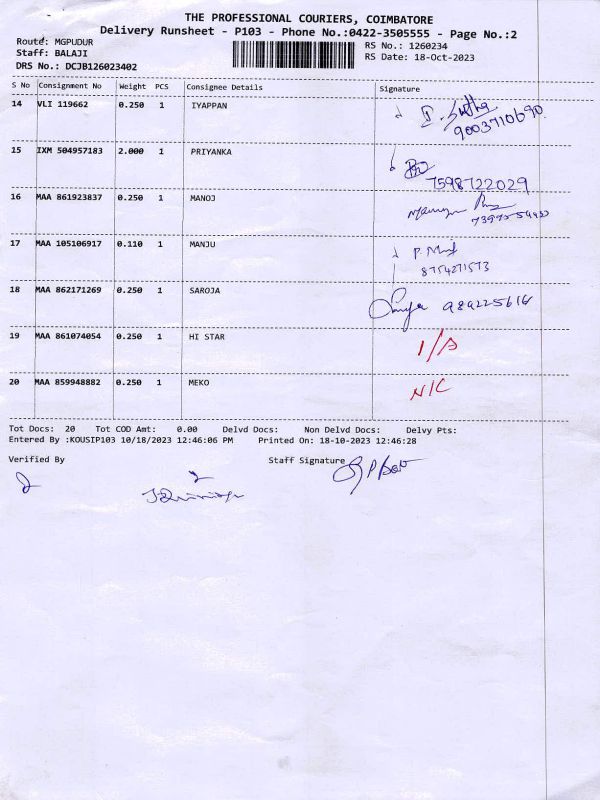 THE PROFESSIONAL COURIERS, COIMBATORE
Delivery Runsheet - P103 - Phone No.:0422-3505555 - Page No.:2
Route: MGPUDUR
RS No.: 1260234
Staff: BALAJI
RS Date: 18-Oct-2023
DRS No.: DCJB126023402
S No Consignment No Weight PCS Consignee Details Signature
14 VLI 119662 0.250 1 IYAPPAN
9003710690
15 IXM 504957183 2.000 1 PRIYANKA
7598722029
16 MAA 861923837 0.250 1 MANOJ
17 MAA 105106917 0.110 1 MANJU
8754271573
18 MAA 862171269 0.250 1 SAROJA
989225616
19 MAA 861074054 0.250 1 HI STAR
20 MAA 859948882 0.250 1 MEKO N/C
Tot Docs: 20 Tot COD Amt: 0.00 Delvd Docs: Non Delvd Docs: Delvy Pts:
Entered By :KOUSIP103 10/18/2023 12:46:06 PM Printed On: 18-10-2023 12:46:28
Verified By Staff Signature